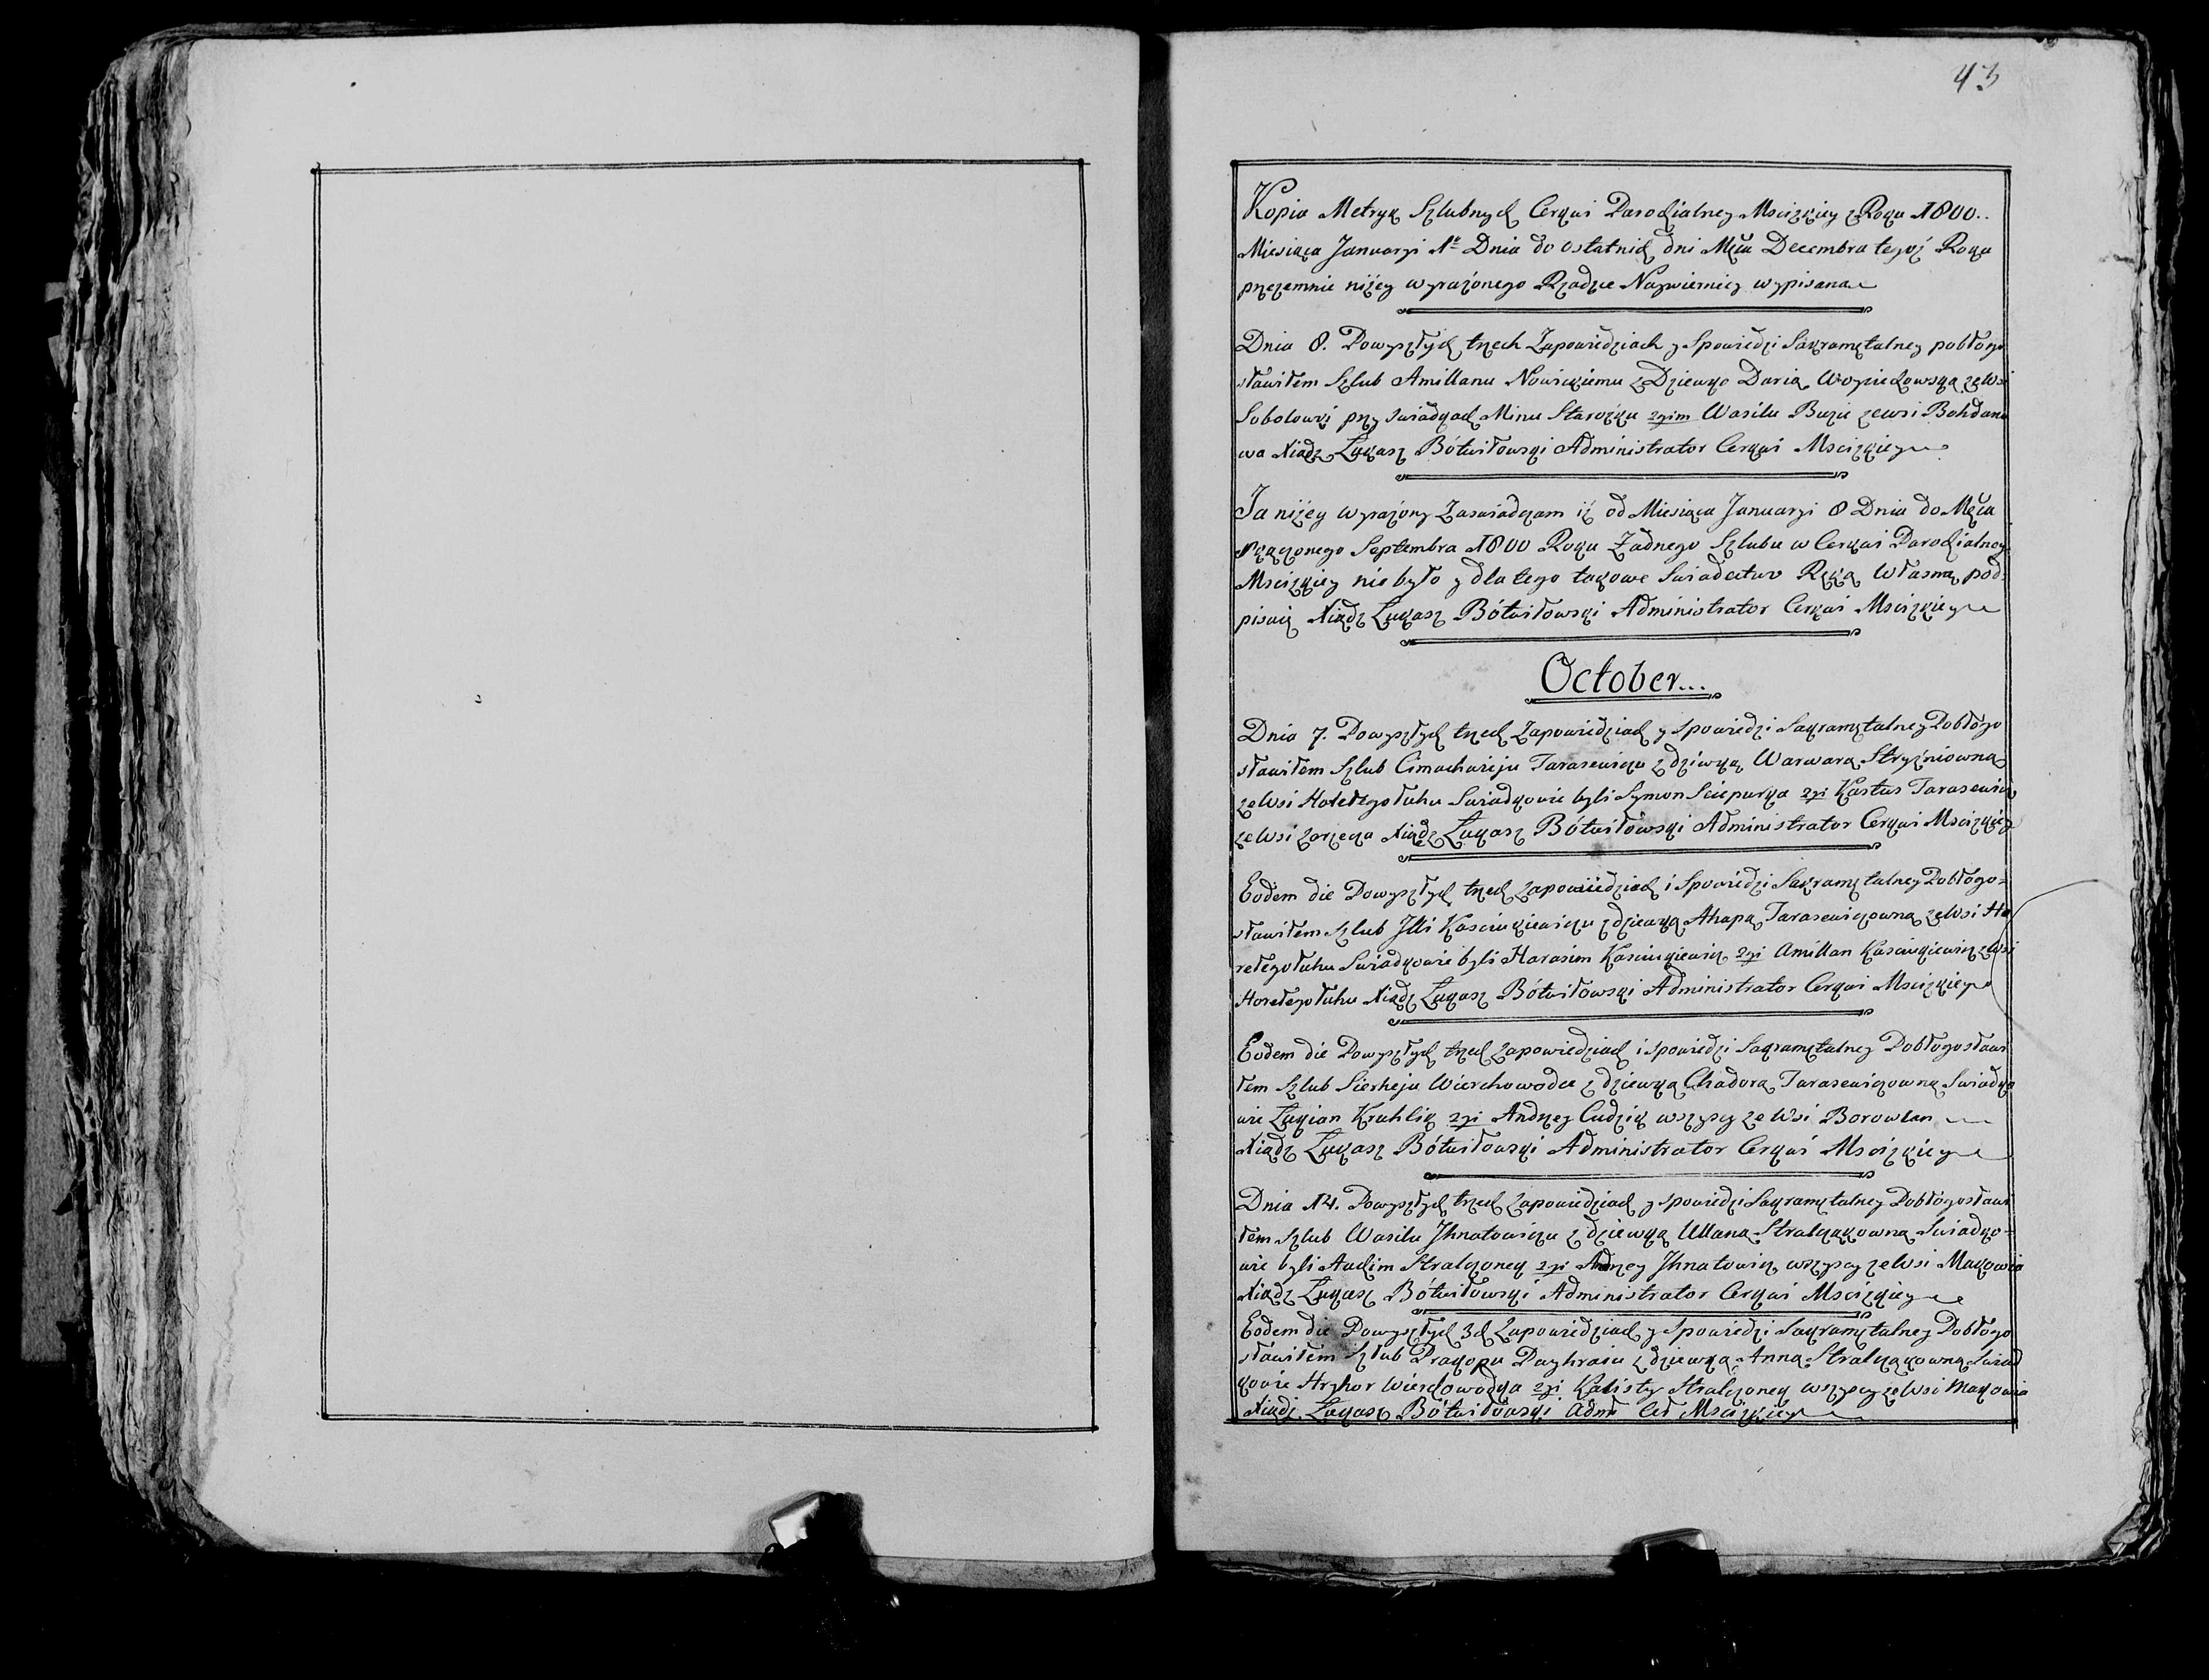 43
Kopia Metryk Szlubnych Cerkwi Parochialney Mscizkiey z Roku 1800..
Miesiąca Januaryi 1º Dnia do ostatnich dni Mca Decembra tegoż Roku
przezemnie niżey wyrażonego Rządce Naywierniey wypisana
Dnia 8. Powyszłych trzech Zapowiedziach y Spowiedzi Sakramętalney pobłogo
sławiłem Szlub Amillanu Nowickiemu z Dziewko Darią Woyciechowską ze Wsi
Sobolowki przy świadkach Minu Starożku 2gim Wasilu Buzie ze wsi Bohdano
wa Xiądz Łukasz Bótwiłowski Administrator Cerkwi Mscizkiey
Ja niżey wyrażony Zaswiadczam iż od Miesiąca Januaryi 8 Dnia do Mca
Septembra 1800 Roku Żadnego Szlubu w Cerkwi Parochialney
Mscizkiey nie było y dla tego takowe Swiadectwo Ręką Własną pod-
pisuię Xiądz Łukasz Bótwiłowski Administrator Cerkwi Mscizkiey
October...
Dnia 7. Powyszłych trzech Zapowiedziach y Spowiedzi Sakramętalney Pobłogo
sławiłem Szlub Cimachwieju Tarasewiczu z dziwką Warwarą Stryżniowną
ze Wsi Horełegołuhu Swiadkowie byli Symon Sciepurka 2gi Kastus Tarasewicz
ze Wsi Zarzeka Xiądz Łukasz Bótwiłowski Administrator Cerkwi Mscizkiey
Eodem die Powyszłych trzech Zapowiedziach i Spowiedzi Sakramętalney Pobłogo-
sławiłem Szlub Illi Kasciukiewiczu z dziewką Ahapą Tarasewiczowną ze Wsi Ho
rełegołuhu Swiadkowie byli Harasim Kasciukiewicz 2gi Amillan Kasciukiewicz ze Wsi
Horełegołuhu Xiądz Łukasz Bótwiłowski Administrator Cerkwi Mscizkiey
Eodem die Powyszłych trzech Zapowiedziach i Spowiedzi Sakramętalney Pobłogosławi
łem Szlub Sierheju Wierchowodce z dziewką Chadorą Tarasewiczowną Swiadko
wie Łukian Kruhlik 2gi Andrzey Cudzik wszyscy ze Wsi Borowlan
Xiądz Łukasz Bótwiłowski Administrator Cerkwi Mscizkiey
Dnia 14. Powyszłych trzech Zapowiedziach y Spowiedzi Sakramętalney Pobłogosławi
łem Szlub Wasilu Jhnatowiczu z dziewką Ullaną Stralczakowną Swiadko-
wie byli Auchim Stralczonek 2gi Andrzey Jhnatowicz wszyscy ze Wsi Makowia
Xiądz Łukasz Bótwiłowski Administrator Cerkwi Mscizkiey
Eodem die Powyszłych 3ch Zapowiedziach y Spowiedzi Sakramętalney Pobłogo
sławiłem Szlub Prakopu Dayhraiu z dziewką Anną Stralczakowną Swiad
kowie Hryhor Wierchowodka 2gi Kalisty Stralczonek wszyscy ze Wsi Makowia
Xiądz Łukasz Bótwiłowski Admr Cer Mscizkiey